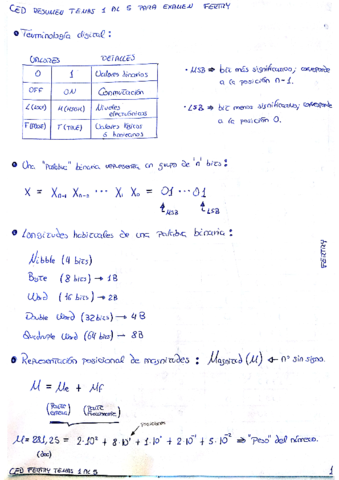 CED RESUMEN TEMAS 1 AL 5 PARA EXAMEN FERTRY
• Terminología digital:
VALORES DETALLES
0 1 Valores binarios
OFF ON Conmutación
L (LOW) H (HIGH) Niveles electrónicos
F (FALSE) T (TRUE) Valores lógicos o booleanos
• MSB ⇒ bit más significativo, corresponde
a la posición n-1.
• LSB ⇒ bit menos significativo, corresponde
a la posición 0.
• Una "Palabra" binaria representa un grupo de 'n' bits:
X = Xn-1 Xn-2 ··· X1 X0 = 01 ··· 01
MSB LSB
• Longitudes habituales de una palabra binaria:
Nibble (4 bits)
Byte (8 bits) → 1B
Word (16 bits) → 2B
Double Word (32 bits) → 4B
Quadruple Word (64 bits) → 8B
• Representación posicional de magnitudes: Magnitud (M) ← nº sin signo.
M = Me + Mf
(Parte entera) (Parte fraccionaria)
posiciones
M = 281,25 = 2·10² + 8·10¹ + 1·10⁰ + 2·10⁻¹ + 5·10⁻² ⇒ "Peso" del número.
(dec)
CED FERTRY TEMAS 1 AL 5 1